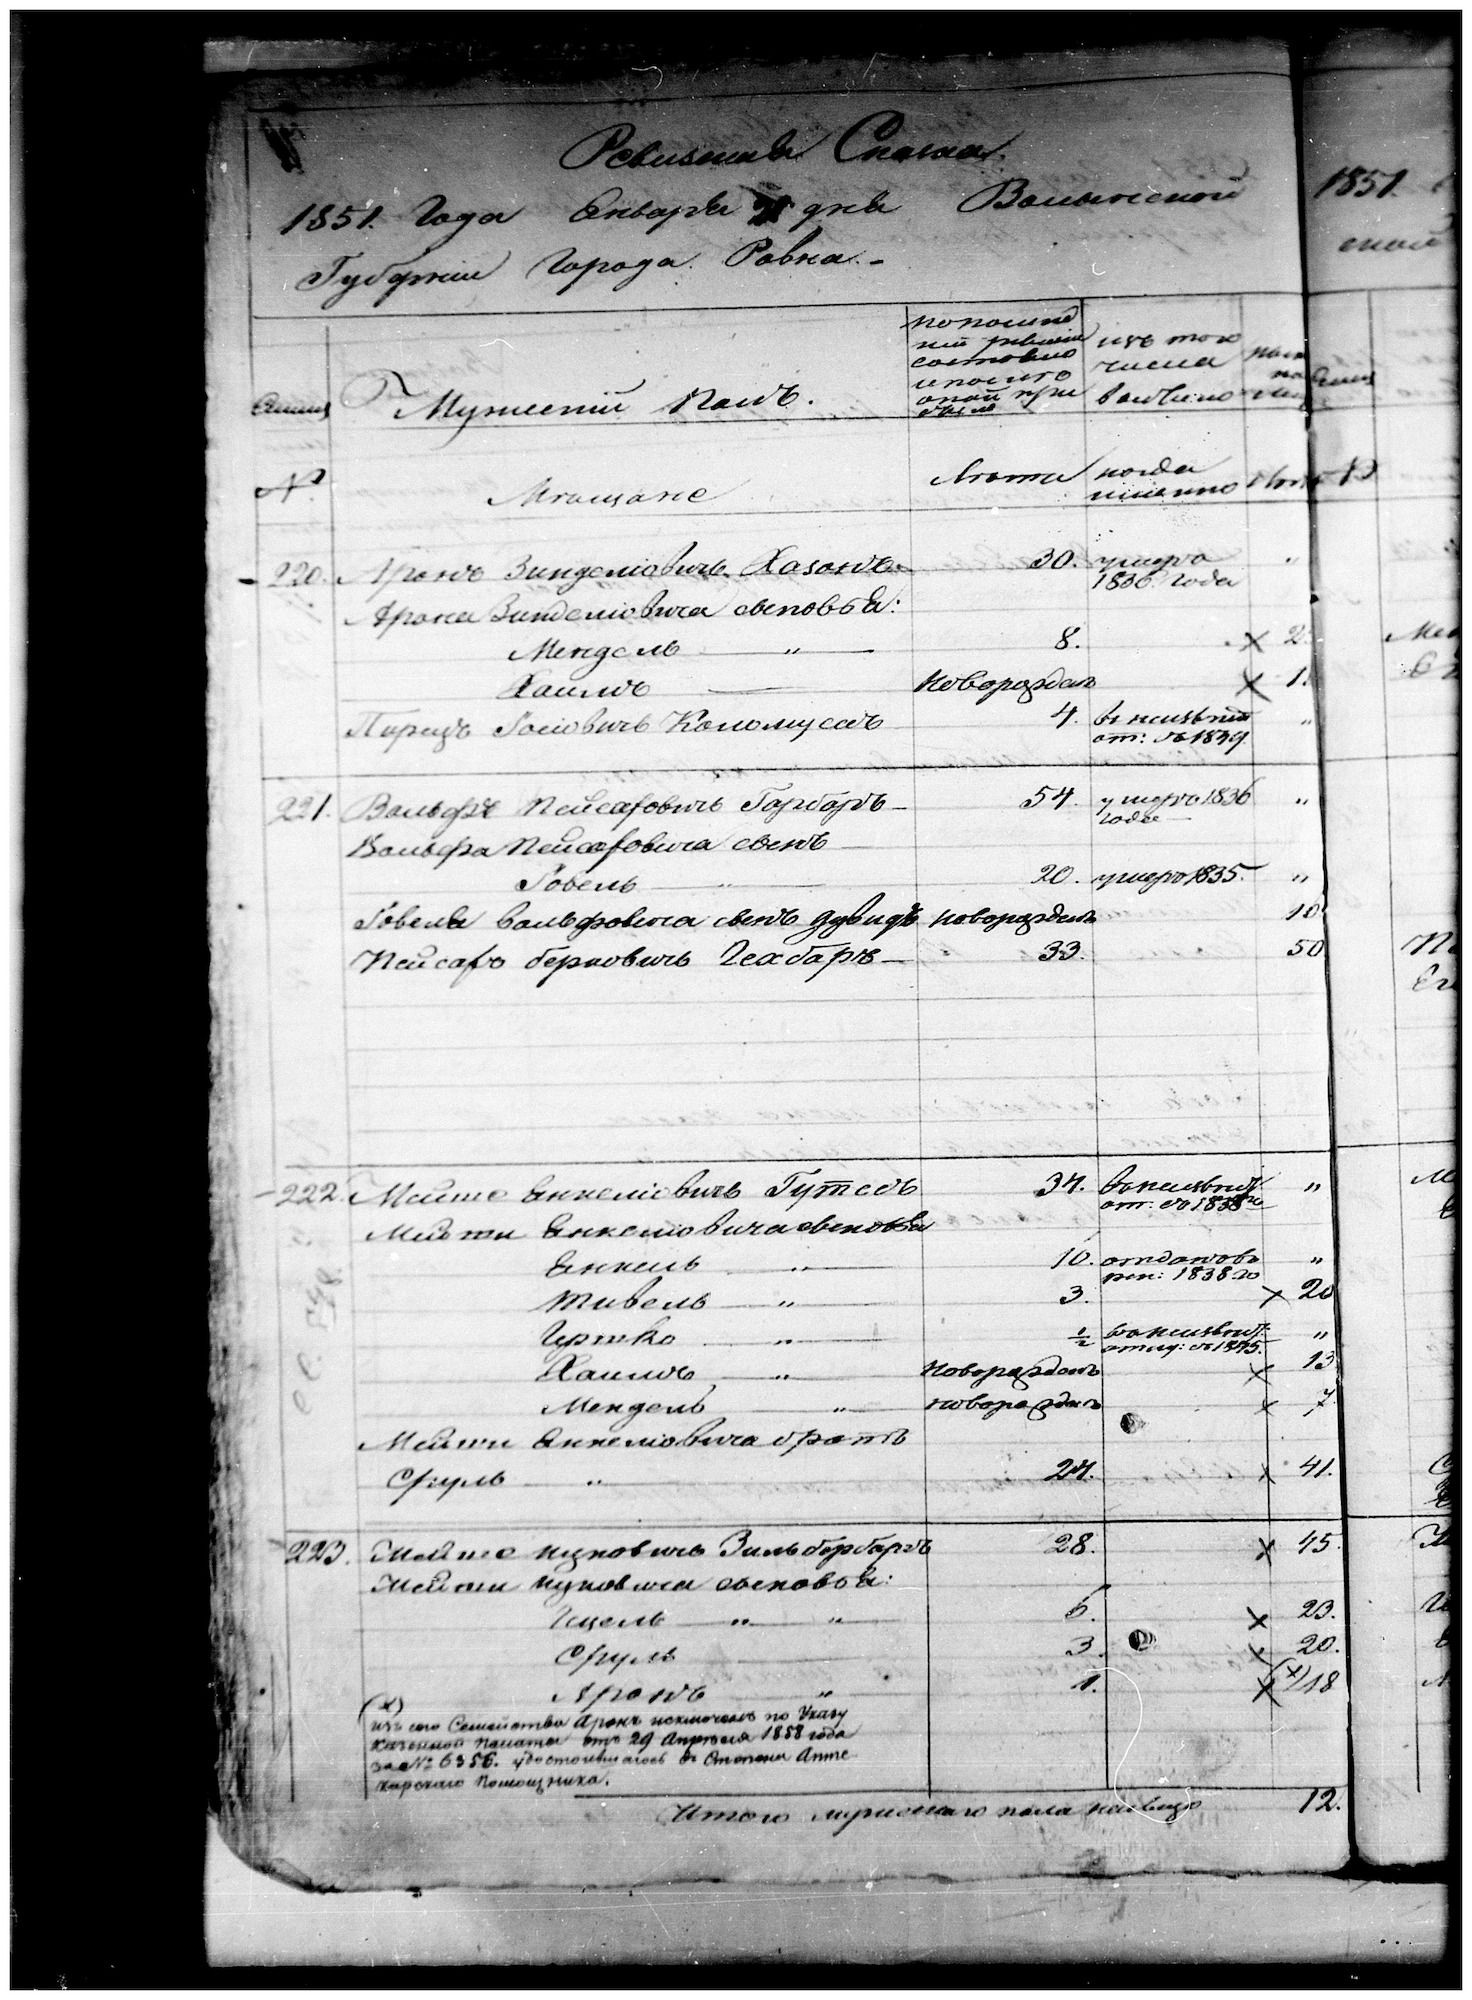 Ревизская Сказка
1851. Года Января дня Волынской
Губернии Города Ровна.
1851.
ской
Семьи
Мужескій полъ.
По последней ревизіи состояло и после того оной прибыло
изъ того числа выбыло
№
Мещане
Лета
когда именно
лета
№
220. Аронъ Зинделіовичъ Хазанъ 30. умеръ 1836. Года "
Арона Зинделіовича сыновья:
Мендель " 8. х 2
Хаимъ новорожденъ х 1.
Пирецъ Іосіовичъ 4. въ неизвест: от: съ 1849. "
221. Вольфъ Пейсаховичъ Гарбаръ 54. умеръ 1836 года "
Вольфа Пейсаховича сынъ
Іовель " 20. умеръ 1835. "
Іовеля Вольфовича сынъ Дувидъ новорожденъ 10
Пейсахъ Берковичъ Гехбаръ 33. 50
222. Мейше Янкеліовичъ Гутсъ 34. въ неизвест: от: съ 1838 го "
Мейши Янкеліовича сыновья
Янкель " 10. отданъ въ рек: 1838 го "
Шивель " 3. х 20
Гершко " ½ въ неизвест: отлу: съ 1845. "
Хаимъ " новорожденъ х 13
Мендель " новорожденъ х 7
Мейши Янкеліовича братъ
Сруль " 24. х 41.
223. Мейше Ицковичъ Зильберфарбъ 28. х 45.
Мейши Ицковича сыновья:
Ицель " " 6. х 23.
Сруль 3. х 20.
Аронъ " 1. х (х) 18
(х)
изъ сего Семейства Аронъ исключенъ по Указу
Казенной Палаты отъ 29 Апреля 1858 года
за № 6356. удостоившагось въ Степени Апте
карскаго Помощника.
Итого мужескаго пола налицо 12.